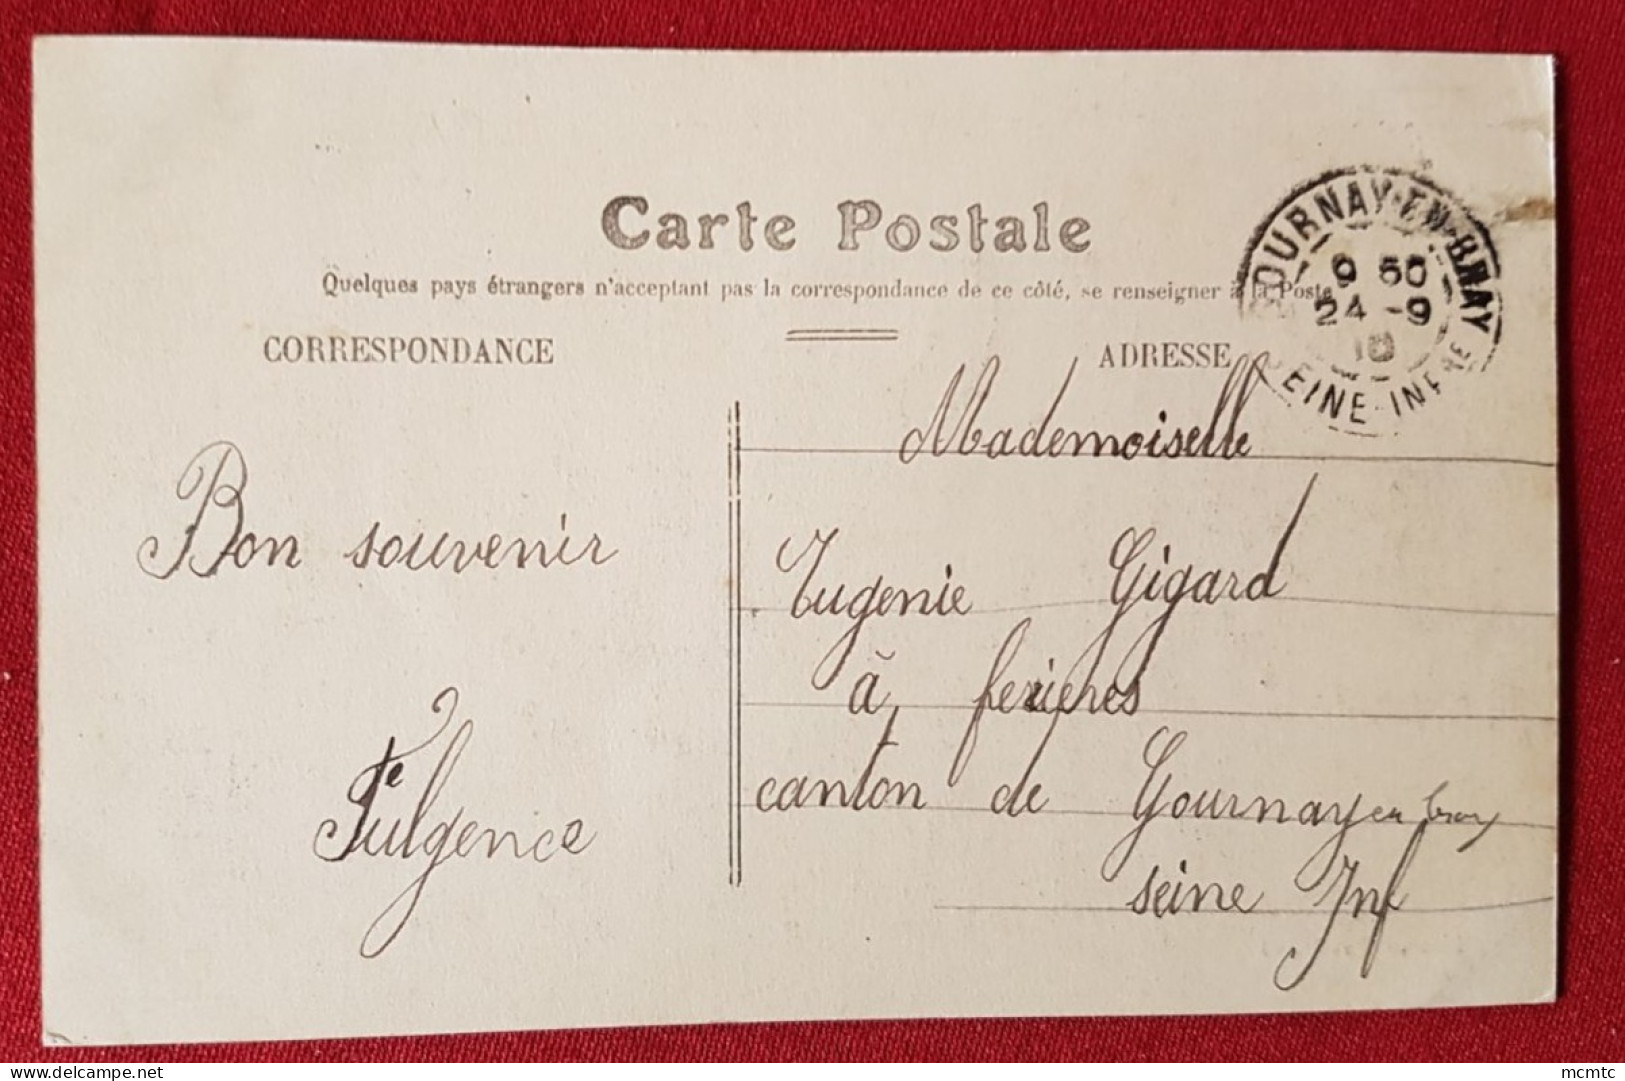 Carte Postale
Quelques pays étrangers n'acceptent pas la correspondance de ce côté, se renseigner à la Poste
CORRESPONDANCE
ADRESSE
GOURNAY-EN-BRAY
9 50
24 -9
10
SEINE-INFRE
Bon souvenir
Fulgence
Mademoiselle
Eugenie Gigard
à ferieres
canton de Gournay en bray
seine Inf
www.delcampe.net
mcmtc